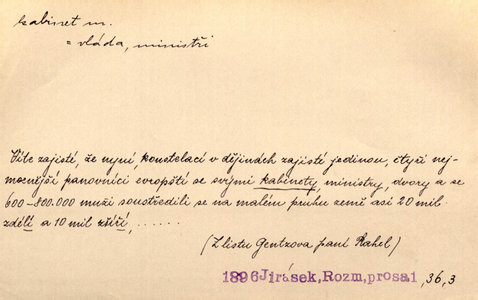 kabinet m.
= vláda, ministři
Víte zajisté, že nyní, konstelací v dějinách zajisté jedinou, čtyři nej-
mocnější panovníci evropští se svými kabinety, ministry, dvory a se
600-800.000 muži soustředili se na malém pruhu země asi 20 mil
zdéli a 10 mil zšíři, .......
(Z listu Gentzova paní Rahel)
1896 Jirásek, Rozm, prosa 1, 36, 3